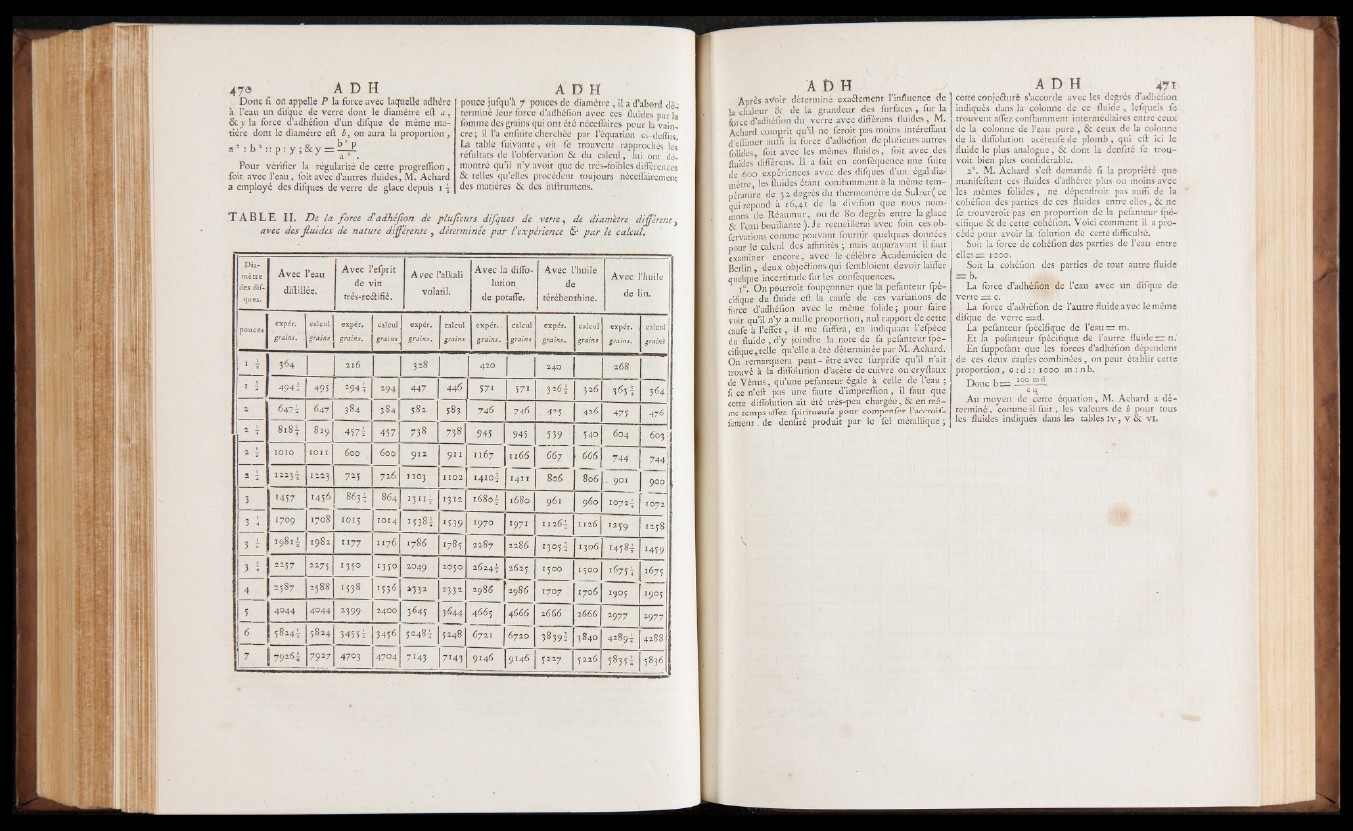 470 A D H
Donc si on appelle P la force avec laquelle adhère
à l'eau un disque de verre dont le diamètre est a,
& y la force d'adhésion d'un disque de même ma-
tière dont le diamètre est b, on aura la proportion,
a ² : b ² :: p : y ; & y = b ² P / a ² .
Pour vérifier la régularité de cette progression,
soit avec l'eau, soit avec d'autres fluides, M. Achard
a employé des disques de verre de glace depuis 1 ½
A D H
pouce jusqu'à 7 pouces de diamètre, il a d'abord dé-
terminé leur force d'adhésion avec ces fluides par la
somme des grains qui ont été nécessaires pour la vain-
cre; il l'a ensuite cherchée par l'équation ci-dessus.
La table suivante, où se trouvent rapprochés les
résultats de l'observation & du calcul, lui ont dé-
montré qu'il n'y avoit que de très-foibles différences
& telles qu'elles procèdent toujours nécessairement
des matières & des instrumens.
TABLE II. De la force d'adhésion de plusieurs disques de verre, de diamètre différent,
avec des fluides de nature différente, déterminée par l'expérience & par le calcul.
Dia-mètre des dis-ques. | Avec l'eau distillée. | Avec l'esprit de vin très-rectifié. | Avec l'alkali volatil. | Avec la disso-lution de potasse. | Avec l'huile de térébenthine. | Avec l'huile de lin.
pouces | expér. grains. | calcul grains | expér. grains. | calcul grains | expér. grains. | calcul grains | expér. grains. | calcul grains | expér. grains. | calcul grains | expér. grains. | calcul grains
364 | 216 | 328 | 420 | 240 | 268
494 | 495 | 294 | 294 | 447 | 446 | 571 | 571 | 326 | 326 | 365 | 364
2 | 647 | 647 | 384 | 384 | 582 | 583 | 746 | 746 | 425 | 426 | 475 | 476
2 ¼ | 818 | 819 | 457 | 457 | 738 | 738 | 945 | 945 | 539 | 540 | 604 | 603
2 ½ | 1010 | 1011 | 600 | 600 | 912 | 911 | 1167 | 1166 | 667 | 666 | 744 | 744
2 ¾ | 1223 | 1223 | 725 | 726 | 1103 | 1102 | 1410 | 1411 | 806 | 806 | 901 | 900
3 | 1457 | 1456 | 863 | 864 | 1311 | 1312 | 1680 | 1680 | 961 | 960 | 1072 | 1072
3 ¼ | 1709 | 1708 | 1015 | 1014 | 1538 | 1539 | 1970 | 1971 | 1126 | 1126 | 1259 | 1258
3 ½ | 1981 | 1982 | 1177 | 1176 | 1786 | 1785 | 2287 | 2286 | 1305 | 1306 | 1458 | 1459
3 ¾ | 2257 | 2275 | 1350 | 1350 | 2049 | 2050 | 2624 | 2625 | 1500 | 1500 | 1675 | 1675
4 | 2587 | 2588 | 1538 | 1536 | 2332 | 2332 | 2986 | 2986 | 1707 | 1706 | 1905 | 1905
5 | 4044 | 4044 | 2399 | 2400 | 3645 | 3644 | 4665 | 4666 | 2666 | 2666 | 2977 | 2977
6 | 5824 | 5824 | 3455 | 3456 | 5248 | 5248 | 6721 | 6720 | 3839 | 3840 | 4289 | 4288
7 | 7926 | 7927 | 4703 | 4704 | 7143 | 7143 | 9146 | 9146 | 5227 | 5226 | 5835 | 5836
A D H
Après avoir déterminé exactement l'influence de
la chaleur & de la grandeur des surfaces, sur la
force d'adhésion du verre avec différens fluides, M.
Achard comprit qu'il ne seroit pas moins intéressant
d'estimer aussi la force d'adhésion de plusieurs autres
solides, soit avec les mêmes fluides, soit avec des
fluides différens. Il a fait en conséquence une suite
de 600 expériences avec des disques d'un égal dia-
mètre, les fluides étant constamment à la même tem-
pérature de 32 degrés du thermomètre de Sulzer (ce
qui répond à 16,41 de la division que nous nom-
mons de Réaumur, ou de 80 degrés entre la glace
& l'eau bouillante). Je recueillerai avec soin ces ob-
servations comme pouvant fournir quelques données
pour le calcul des affinités; mais auparavant il faut
examiner encore, avec le célèbre Académicien de
Berlin, deux objections qui sembloient devoir laisser
quelque incertitude sur les conséquences.
1°. On pourroit soupçonner que la pesanteur spé-
cifique du fluide est la cause de ces variations de
force d'adhésion avec le même solide; pour faire
voir qu'il n'y a nulle proportion, nul rapport de cette
cause à l'effet, il me suffira, en indiquant l'espèce
du fluide, d'y joindre la note de sa pesanteur spé-
cifique, telle qu'elle a été déterminée par M. Achard.
On remarquera peut-être avec surprise qu'il n'ait
trouvé à la dissolution d'acète de cuivre ou crystaux
de Vénus, qu'une pesanteur égale à celle de l'eau;
si ce n'est pas une faute d'impression, il faut que
cette dissolution ait été très-peu chargée, & en mê-
me temps assez spiritueuse pour compenser l'accrois-
sement de densité produit par le sel métallique;
A D H 471
cette conjecture s'accorde avec les degrés d'adhésion
indiqués dans la colonne de ce fluide, lesquels se
trouvent assez constamment intermédiaires entre ceux
de la colonne de l'eau pure, & ceux de la colonne
de la dissolution acéteuse de plomb, qui est ici le
fluide le plus analogue, & dont la densité se trou-
voit bien plus considérable.
2°. M. Achard s'est demandé si la propriété que
manifestent ces fluides d'adhérer plus ou moins avec
les mêmes solides, ne dépendroit pas aussi de la
cohésion des parties de ces fluides entre elles, & ne
se trouveroit pas en proportion de la pesanteur spé-
cifique & de cette cohésion. Voici comment il a pro-
cédé pour avoir la solution de cette difficulté.
Soit la force de cohésion des parties de l'eau entre
elles = 1000.
Soit la cohésion des parties de tout autre fluide
= b.
La force d'adhésion de l'eau avec un disque de
verre = c.
La force d'adhésion de l'autre fluide avec le même
disque de verre = d.
La pesanteur spécifique de l'eau = m.
Et la pesanteur spécifique de l'autre fluide = n.
En supposant que les forces d'adhésion dépendent
de ces deux causes combinées, on peut établir cette
proportion, c : d :: 1000 m : n b.
Donc b =
Au moyen de cette équation, M. Achard a dé-
terminé, comme il suit, les valeurs de b pour tous
les fluides indiqués dans les tables IV, V & VI.